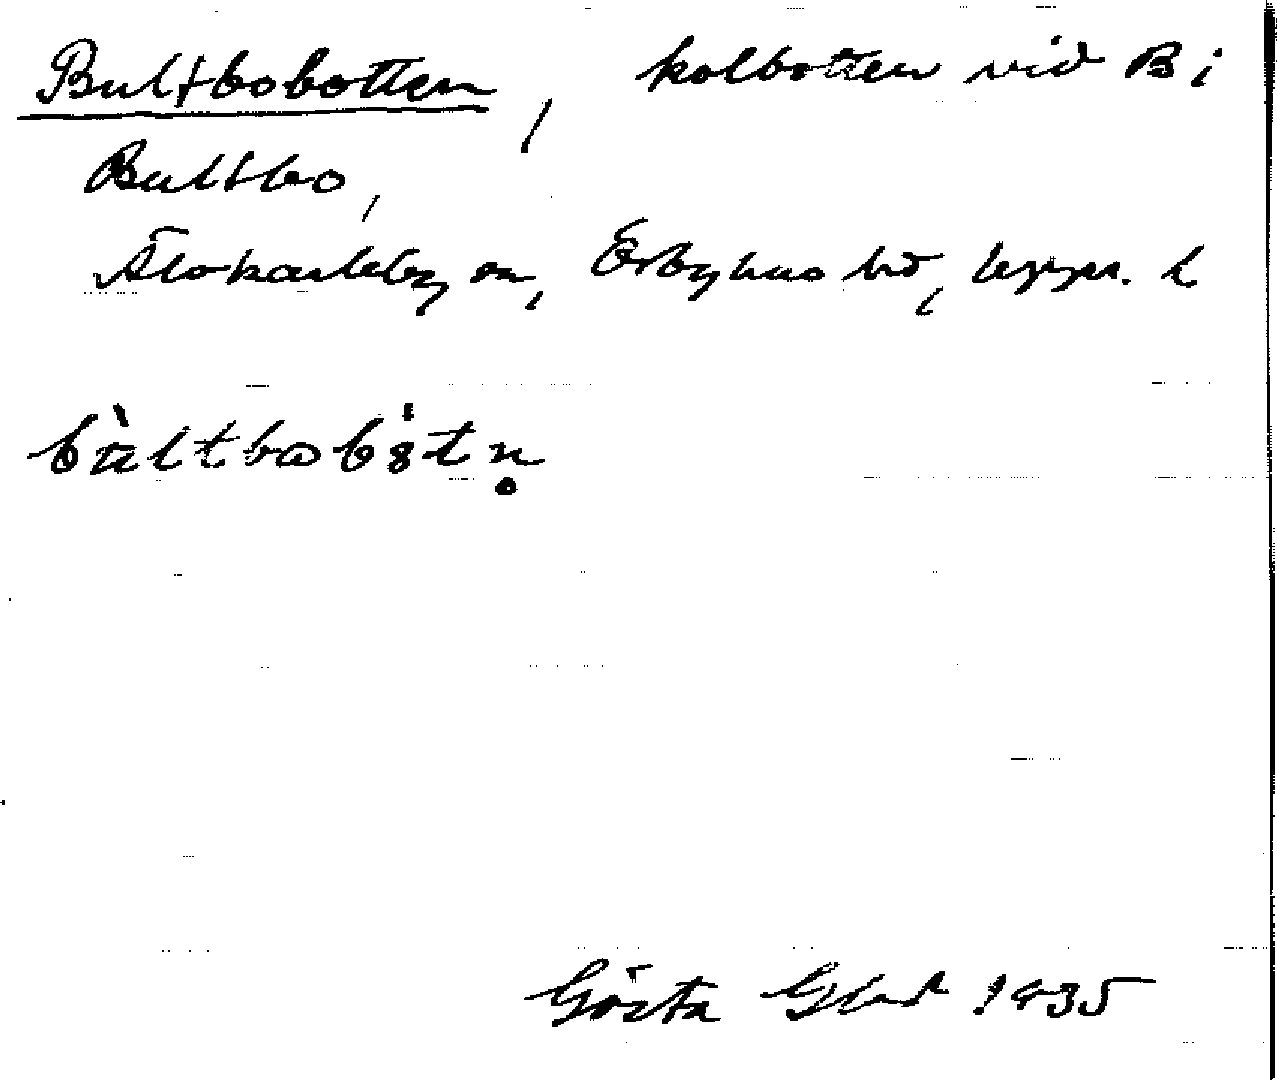 Bultbobotten, kolbotten vid B i
Bultbo,
Älvkarleby sn, Örbyhus hd, Uppr. l
bùltbobȯtn̥
Gösta 1935